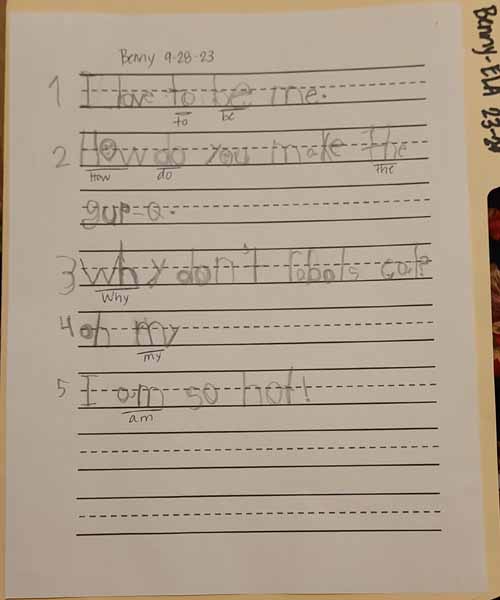 Benny 9-28-23
Benny-ELA 23-
1 I love to be me.
to be
2 How do you make the
How do the
gup=Q.
3 Why don't robots eat?
Why
4 oh my
my
5 I am so hot!
am